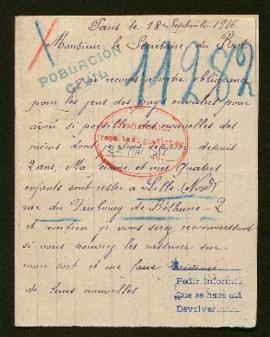 Paris le 18 Septembre 1916
Monsieur le Secrétaire du Roy
POBLACION
CIVIL
11282
pour les gens des pays envahis pour
avoir si possible des nouvelles des
miens dont depuis
2 ans, Ma femme et mes quatres
enfants sont restés à Lille (Nord)
rue du Faubourg de Béthune - 2
et m'enfin je vous serez reconnaissant
si vous pouvez les rassurer sur
mon sort et me faire
de leurs nouvelles
Pedir informes
que se hace así
Devolver